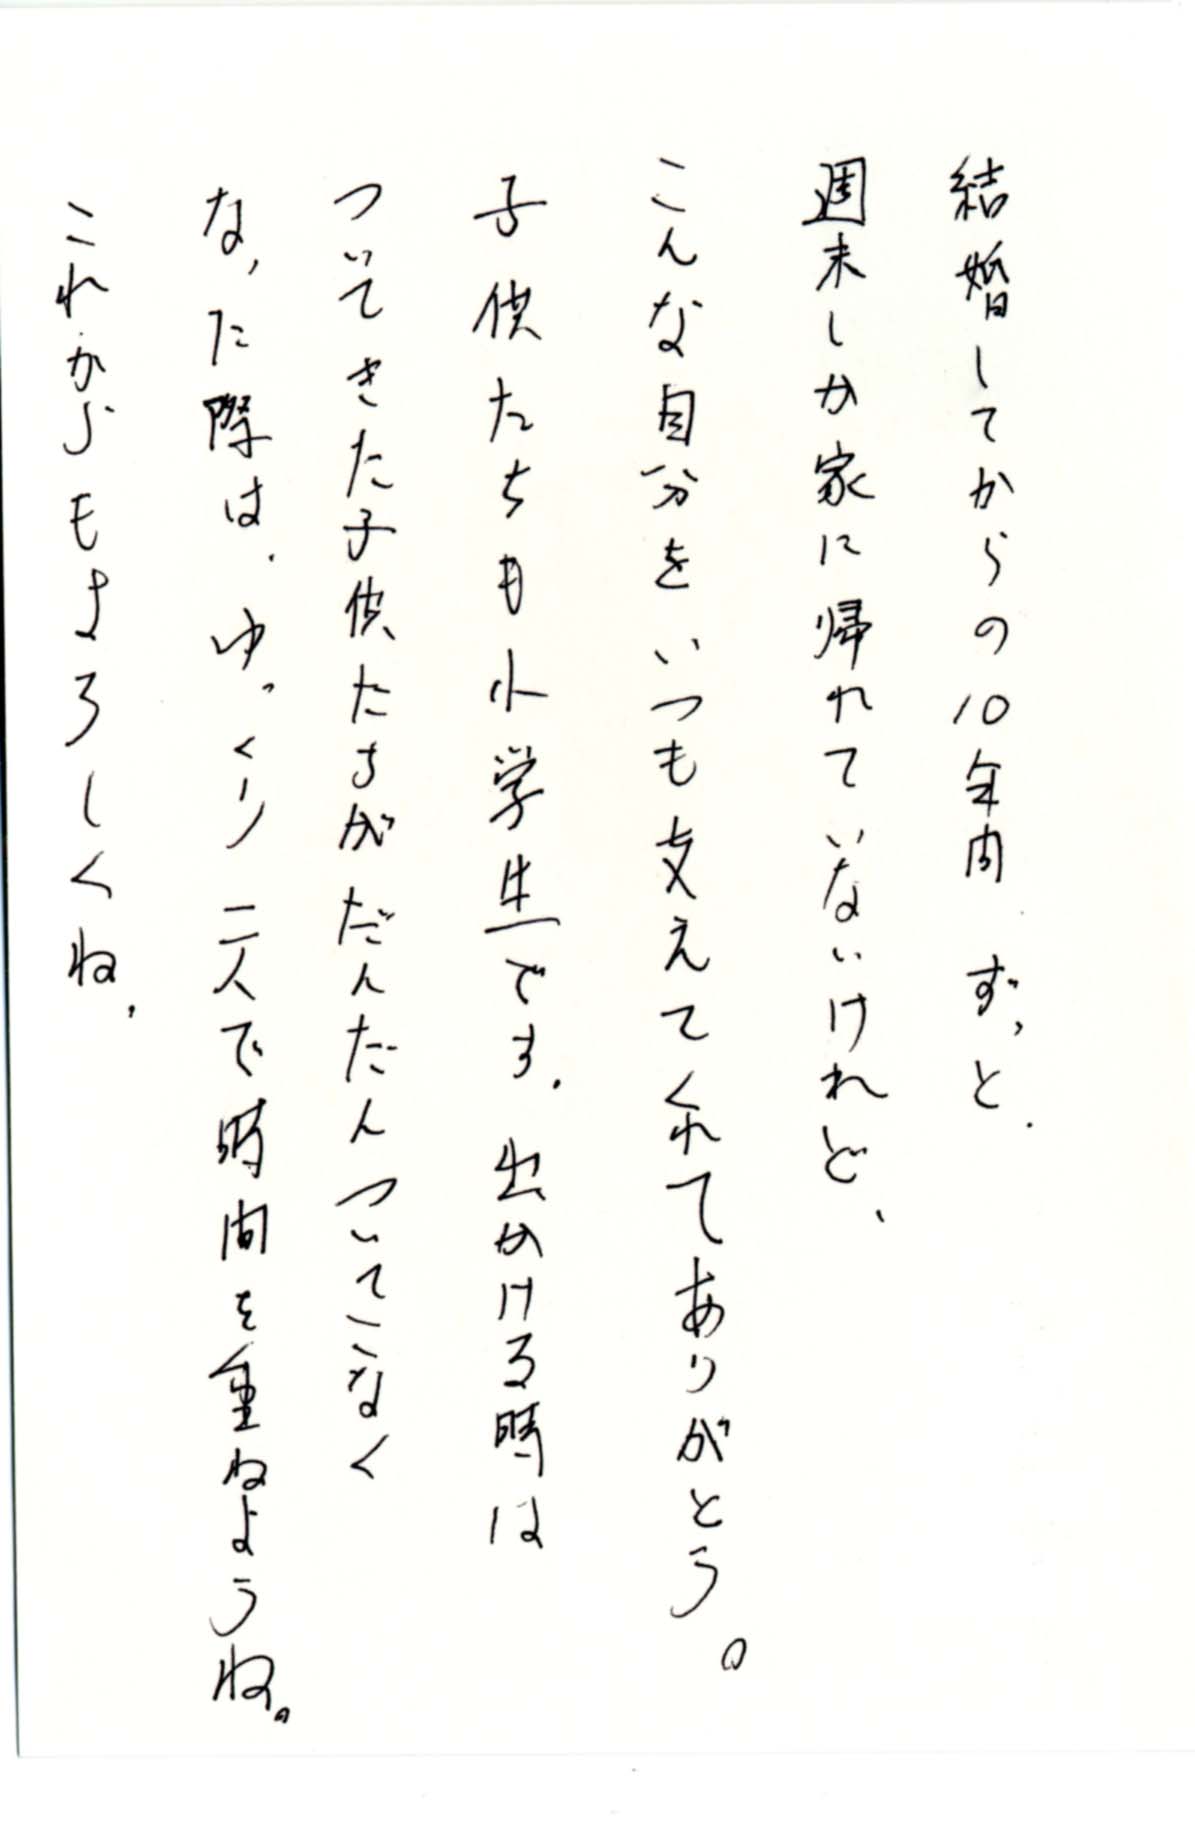 結婚してからの10年間 ずっと、
週末しか家に帰れていないけれど、
こんな自分をいつも支えてくれてありがとう。
子供たちも小学生です。出かける時は
ついてきた子供たちがだんだんついてこなく
なった際は、ゆっくり二人で時間を重ねようね。
これからもよろしくね。